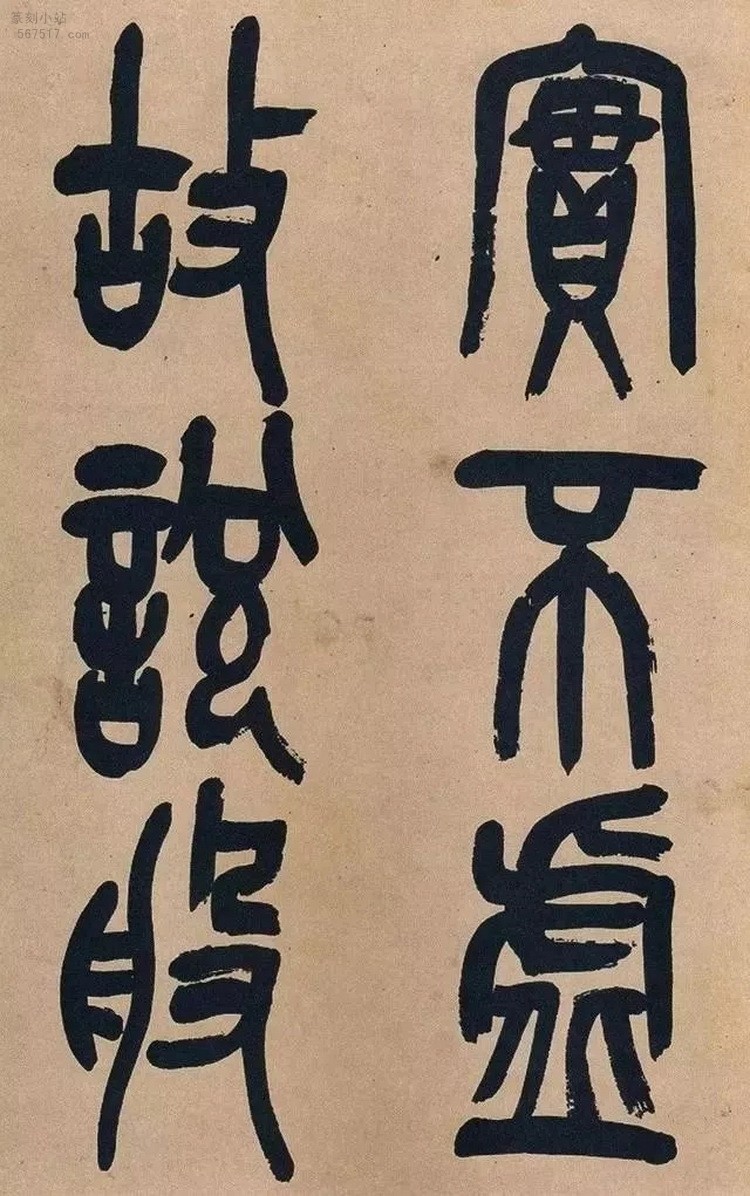 篆刻小站
567517.com
實不虛
故說般